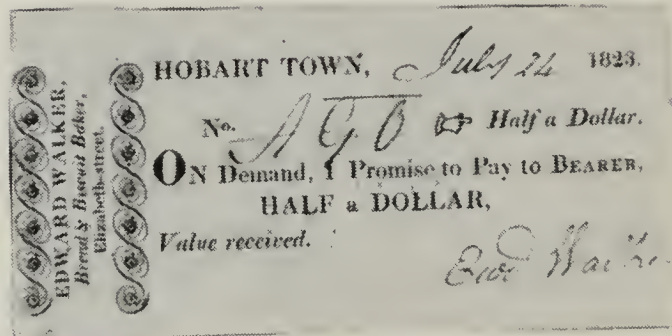 EDWARD WALKER,
Bread & Biscuit Baker,
Elizabeth-street.
HOBART TOWN, July 24 1823.
No. ☞ Half a Dollar.
ON Demand, I Promise to Pay to BEARER,
HALF a DOLLAR,
Value received.
Edwd Walker